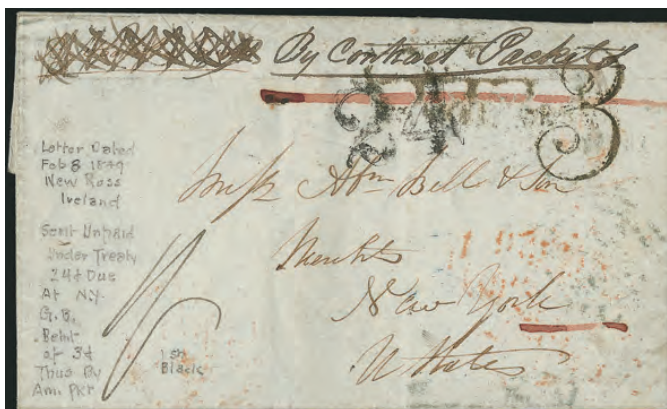 By Contract Packets
24
3
Letter Dated
Feb 8 1849
New Ross
Ireland
Sent Unpaid
Under Treaty
24¢ Due
At NY
G.B.
of 3¢
Thus By
Am. Pkt
1 sh
Black
Messrs Abm Bell & Son
Merchts
New York
U States